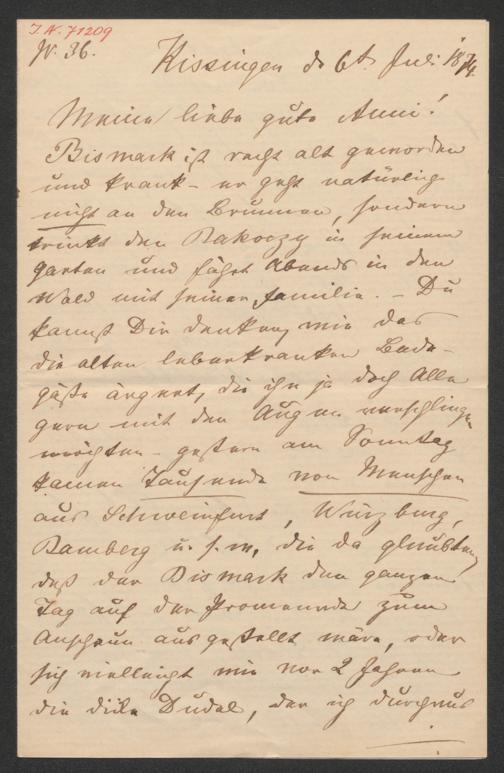 I.N. 71209
N. 36.
Kissingen d 6t Juli 1874.
Meine liebe gute Anni!
Bismark ist recht alt geworden
und krank – er geht natürlich
nicht an den Brunnen, sondern
trinkt den Rakoczy in seinem
Garten und fährt Abends in den
Wald mit seiner Familie. – Du
kannst Dir denken, wie das
die alten leberkranken Bade-
gäste ärgert, die ihn ja doch Alle
gern mit den Augen verschlingen
möchten – gestern am Sonntag
kamen Tausende von Menschen
aus Schweinfurt, Würzburg,
Bamberg u. s. w., die da glaubten,
daß der Bismark den ganzen
Tag auf der Promenade zum
Anschaun ausgestellt wäre, oder
sich vielleicht wie vor 2 Jahren
die dicke, der ich durchaus